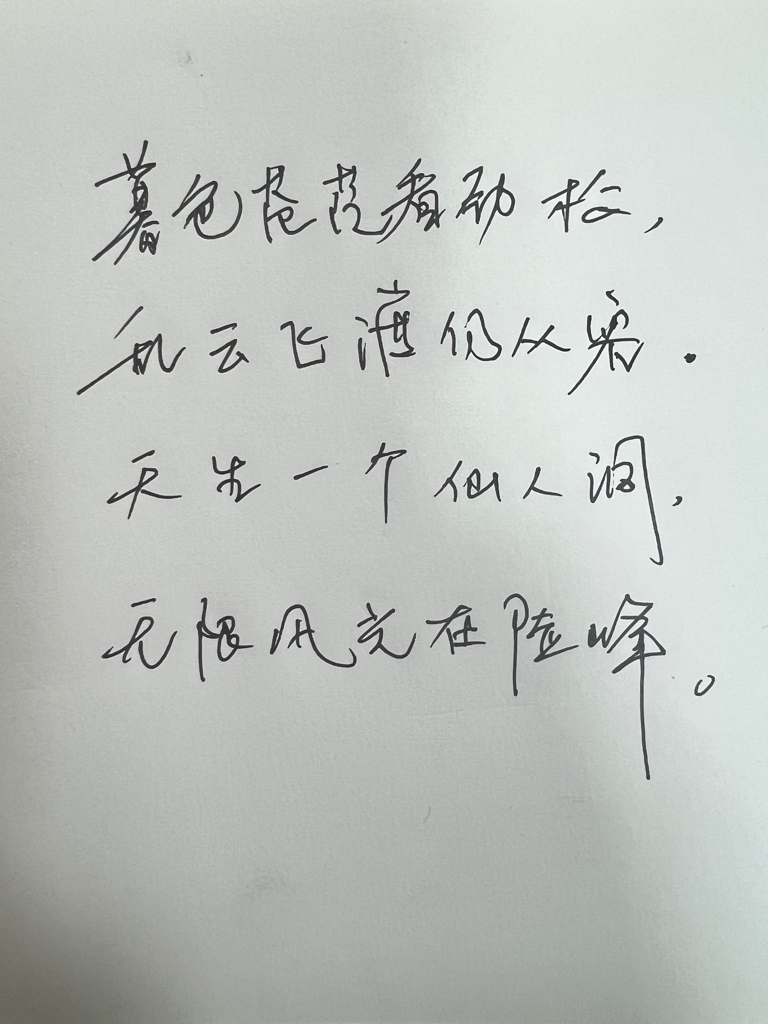 暮色苍茫看劲松，
乱云飞渡仍从容.
天生一个仙人洞，
无限风光在险峰。